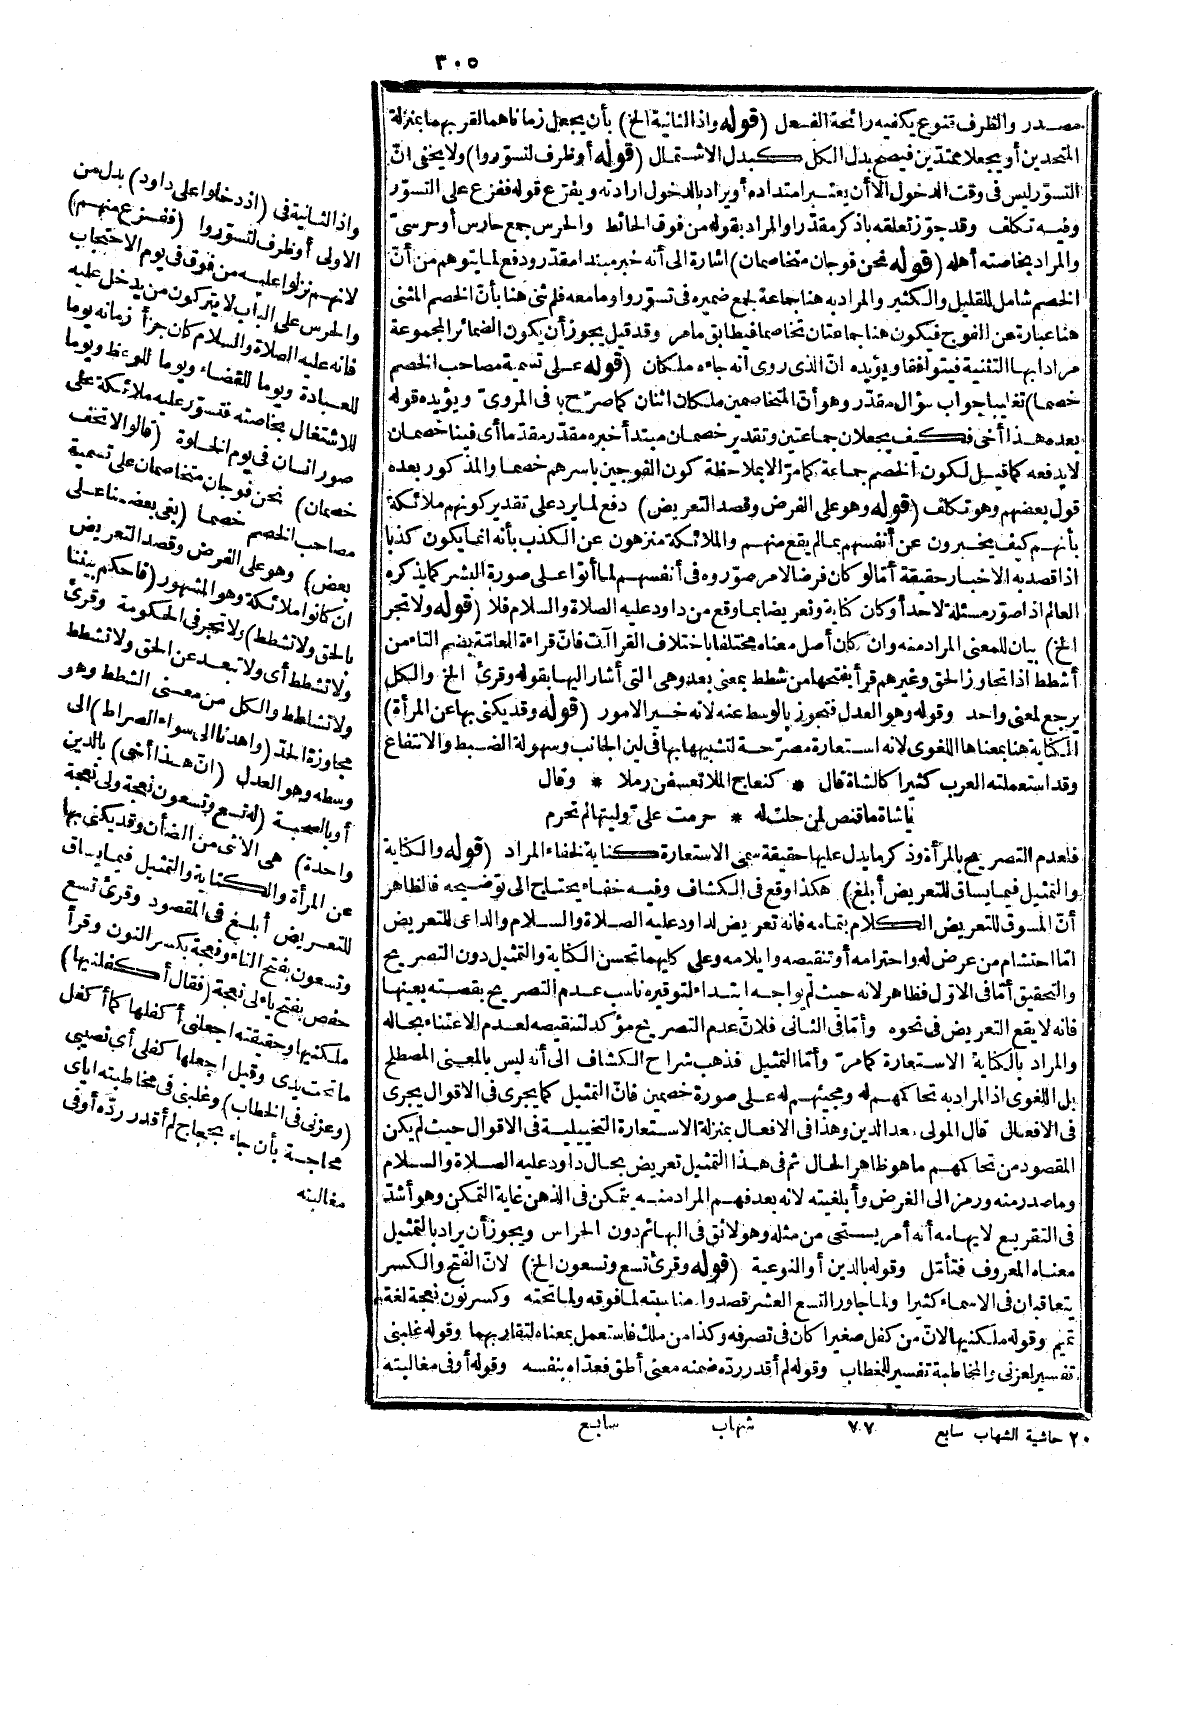 ٣٠٥
مصدر والظرف تنوع يكفيه رائحة الفعل (قوله واذ الثانية الخ) بأن يجعل زماناهما لقربهما بمنزلة
المتحدين أو يجعلا ممتدّين فيصح بدل الكل كبدل الاشتمال (قوله أو ظرف لتسوّروا) ولا يخفى انّ
التسوّر ليس فى وقت الدخول الا أن يعتبر امتداده أو يراد بالدخول ارادته ويفزع قوله ففزع على التسوّر
وفيه تكلف وقد جوّز تعلقه باذكر مقدّرا والمراد بقوله من فوق الحائط والحرس جمع حارس أو حرسىّ
والمراد بخاصته أهله (قوله نحن فوجان متخاصمان) اشارة الى أنه خبر مبتدا مقدّر ودفع لما يتوهم من أنّ
الخصم شامل للقليل والكثير والمراد به هنا جماعة لجمع ضميره فى تسوّروا وما معه فلم ثنى هنا بأنّ الخصم المثنى
هنا عبارة عن الفوج فيكون هنا جماعتان تخاصما فيطابق ما مر وقد قيل يجوز أن يكون الضمائر المجموعة
مرادا بها التثنية فيتوافقا ويؤيده انّ الذى روى أنه جاءه ملكان (قوله على تسمية مصاحب الخصم
خصما) تغليبا جواب سؤال مقدّر وهو أنّ المتخاصمين ملكان اثنان كما صرّح به فى المروىّ ويؤيده قوله
بعده هذا أخى فكيف يجعلان جماعتين وتقدير خصمان مبتدأ خبره مقدّر مقدّما أى فينا خصمان
لا يدفعه كما قيل لكون الخصم جماعة كما مرّ الا بملاحظة كون الفوجين باسرهم خصما والمذكور بعده
قول بعضهم وهو تكلف (قوله وهو على الفرض وقصد التعريض) دفع لما يرد على تقدير كونهم ملائكة
بأنهم كيف يخبرون عن أنفسهم بما لم يقع منهم والملائكة منزهون عن الكذب بأنه انما يكون كذبا
اذا قصد به الاخبار حقيقة أمّا لو كان فرضا لامر صوّروه فى أنفسهم لما أتوا على صورة البشر كما يذكره
العالم اذا صوّر مسئلة لاحد أو كان كناية وتعريضا بما وقع من داود عليه الصلاة والسلام فلا (قوله ولا تجر
الخ) بيان للمعنى المراد منه وان كان أصل معناه مختلفا باختلاف القراآت فانّ قراءة العامّة بضم التاء من
أشطط اذا تجاوز الحق وغيرهم قرأ بفتحها من شطط بمعنى بعد وهى التى أشار اليها بقوله وقرئ الخ والكل
يرجع لمعنى واحد وقوله وهو العدل فتجوز بالوسط عنه لانه خير الامور (قوله وقد يكنى بها عن المرأة)
الكناية هنا بمعناها اللغوى لانه استعارة مصرّحة لتشبيهها بها فى لين الجانب وسهولة الضبط والانتفاع
وقد استعملته العرب كثيرا كالشاة قال * كنعاج الملا تعسفن رملا * وقال
يا شاة ما قنص لمن حلت له * حرمت علىّ وليتها لم تحرم
فلعدم التصريح بالمرأة وذكر ما يدل عليها حقيقة سمى الاستعارة كناية لخفاء المراد (قوله والكناية
والتمثيل فيما يساق للتعريض أبلغ) هكذا وقع فى الكشاف وفيه خفاء يحتاج الى توضيحه فالظاهر
أنّ المسوق للتعريض الكلام بتمامه فانه تعريض لداود عليه الصلاة والسلام والداعى للتعريض
امّا احتشام من عرض له واحترامه أو تنقيصه وايلامه وعلى كليهما تحسن الكناية والتمثيل دون التصريح
والتحقيق أمّا فى الاوّل فظاهر لانه حيث لم يواجه ابتداء لتوقيره ناسب عدم التصريح بقصته بعينها
فانه لا يقع التعريض فى نحوه وأمّا فى الثانى فلانّ عدم التصريح مؤكد لتنقيصه لعدم الاعتناء بحاله
والمراد بالكناية الاستعارة كما مرّ وأمّا التمثيل فذهب شراح الكشاف الى أنه ليس بالمعنى المصطلح
بل اللغوى اذ المراد به تحاكمهم له ومجيئهم له على صورة خصمين فانّ التمثيل كما يجرى فى الاقوال يجرى
فى الافعال قال المولى سعد الدين وهذا فى الافعال بمنزلة الاستعارة التخييلية فى الاقوال حيث لم يكن
المقصود من تحاكمهم ما هو ظاهر الحال ثم فى هذا التمثيل تعريض بحال داود عليه الصلاة والسلام
وما صدر منه ورمز الى الغرض وأبلغيته لانه بعد فهم المراد منه يتمكن فى الذهن غاية التمكن وهو أشدّ
فى التقريع لايهامه أنه أمر يستحى من مثله وهو لائق فى البهائم دون الحراس ويجوز أن يراد بالتمثيل
معناه المعروف فتأمّل وقوله بالدين أو النوعية (قوله وقرئ تسع وتسعون الخ) لانّ الفتح والكسر
يتعاقبان فى الاسماء كثيرا ولما جاور التسع العشر قصدوا مناسبته لما فوقه ولما تحته وكسر نون نعجة لغة
تميم وقوله ملكنيها لانّ من كفل صغيرا كان فى تصرفه وكذا من ملك فاستعمل بمعناه لتقاربهما وقوله غلبنى
تفسير لعزنى والمخاطبة تفسير للخطاب وقوله لم أقدر ردّه ضمنه معنى أطق فعدّاه بنفسه وقوله أو فى مغالبته
واذ الثانية فى (اذ دخلوا على داود) بدل من
الاولى أو ظرف لتسوّروا (ففزع منهم)
لانهم نزلوا عليه من فوق فى يوم الاحتجاب
والحرس على الباب لا يتركون من يدخل عليه
فانه عليه الصلاة والسلام كان جزأ زمانه يوما
للعبادة ويوما للقضاء ويوما للوعظ ويوما
للاشتغال بخاصته فتسوّر عليه ملائكة على
صور انسان فى يوم الخلوة (قالوا لا تخف
خصمان) نحن فوجان متخاصمان على تسمية
مصاحب الخصم خصما (بغى بعضنا على
بعض) وهو على الفرض وقصد التعريض
ان كانوا ملائكة وهو المشهور (فاحكم بيننا
بالحق ولا تشطط) ولا تجر فى الحكومة وقرئ
ولا تشطط أى ولا تبعد عن الحق ولا تشطط
ولا تشاطط والكل من معنى الشطط وهو
مجاوزة الحدّ (واهدنا الى سواء الصراط) الى
وسطه وهو العدل (انّ هذا أخى) بالدين
أو بالصحبة (له تسع وتسعون نعجة ولى نعجة
واحدة) هى الانثى من الضأن وقد يكنى بها
عن المرأة والكناية والتمثيل فيما يساق
للتعريض أبلغ فى المقصود وقرئ تسع
وتسعون بفتح التاء ونعجة بكسر النون وقرأ
حفص بفتح ياء لى نعجة (فقال أكفلنيها)
ملكنيها وحقيقته اجعلنى أكفلها كما أكفل
ما تحت يدى وقيل اجعلها كفلى أى نصيبى
(وعزنى فى الخطاب) وغلبنى فى مخاطبته اياى
محاجة بأن جاء بحجاج لم أقدر ردّه أو فى
مغالبته
٢٠ حاشية الشهاب سابع ٧٧ شهاب سابع